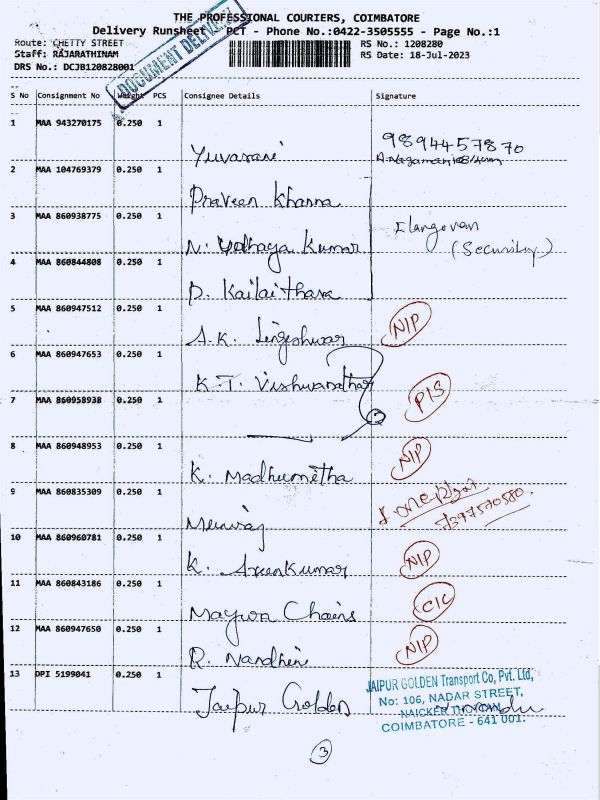 THE PROFESSIONAL COURIERS, COIMBATORE
Delivery Runsheet - PCT - Phone No.:0422-3505555 - Page No.:1
Route: CHETTY STREET
RS No.: 1208280
Staff: RAJARATHINAM
RS Date: 18-Jul-2023
DRS No.: DCJB120828001
DOCUMENT DELIVERY
S No Consignment No Weight PCS Consignee Details Signature
1 MAA 943270175 0.250 1
Yuvarani 9894457870
2 MAA 104769379 0.250 1
Praveen Khanna
3 MAA 860938775 0.250 1
Elangovan
N. Udhaya Kumar (Security)
4 MAA 860844808 0.250 1
D. Kailaithara
5 MAA 860947512 0.250 1
A.K. Lingeshwar NIP
6 MAA 860947653 0.250 1
K.T. Vishwanathan
7 MAA 860958938 0.250 1
PIS
8 MAA 860948953 0.250 1
K. Madhumetha NIP
9 MAA 860835309 0.250 1
10 MAA 860960781 0.250 1
K. Arunkumar NIP
11 MAA 860843186 0.250 1
Mayura Chains CIC
12 MAA 860947650 0.250 1
R. Nandhini NIP
13 DPI 5199041 0.250 1
Jaipur Golden
JAIPUR GOLDEN Transport Co, Pvt. Ltd,
No: 106, NADAR STREET,
NAICKER THOTTAM,
COIMBATORE - 641 001.
3